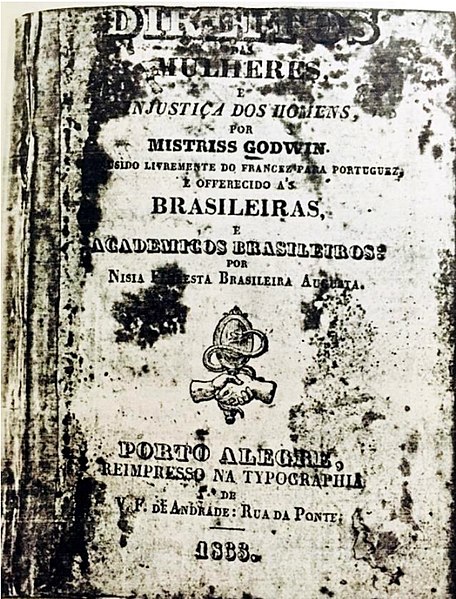 DIREITOS
DAS
MULHERES,
E
INJUSTIÇA DOS HOMENS,
POR
MISTRISS GODWIN.
LIVREMENTE DO FRANCEZ PARA PORTUGUEZ,
E OFFERECIDO A'S
BRASILEIRAS,
E
ACADEMICOS BRASILEIROS:
POR
NISIA FLORESTA BRASILEIRA AUGUSTA.
PORTO ALEGRE,
REIMPRESSO NA TYPOGRAPHIA
DE
V. F. DE ANDRADE: RUA DA PONTE;
1833.